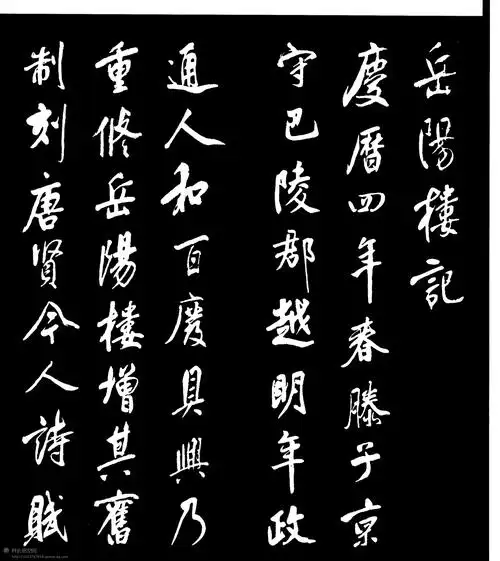 岳陽樓記
慶曆四年春滕子京
守巴陵郡越明年政
通人和百廢具興乃
重修岳陽樓增其舊
制刻唐賢今人詩賦